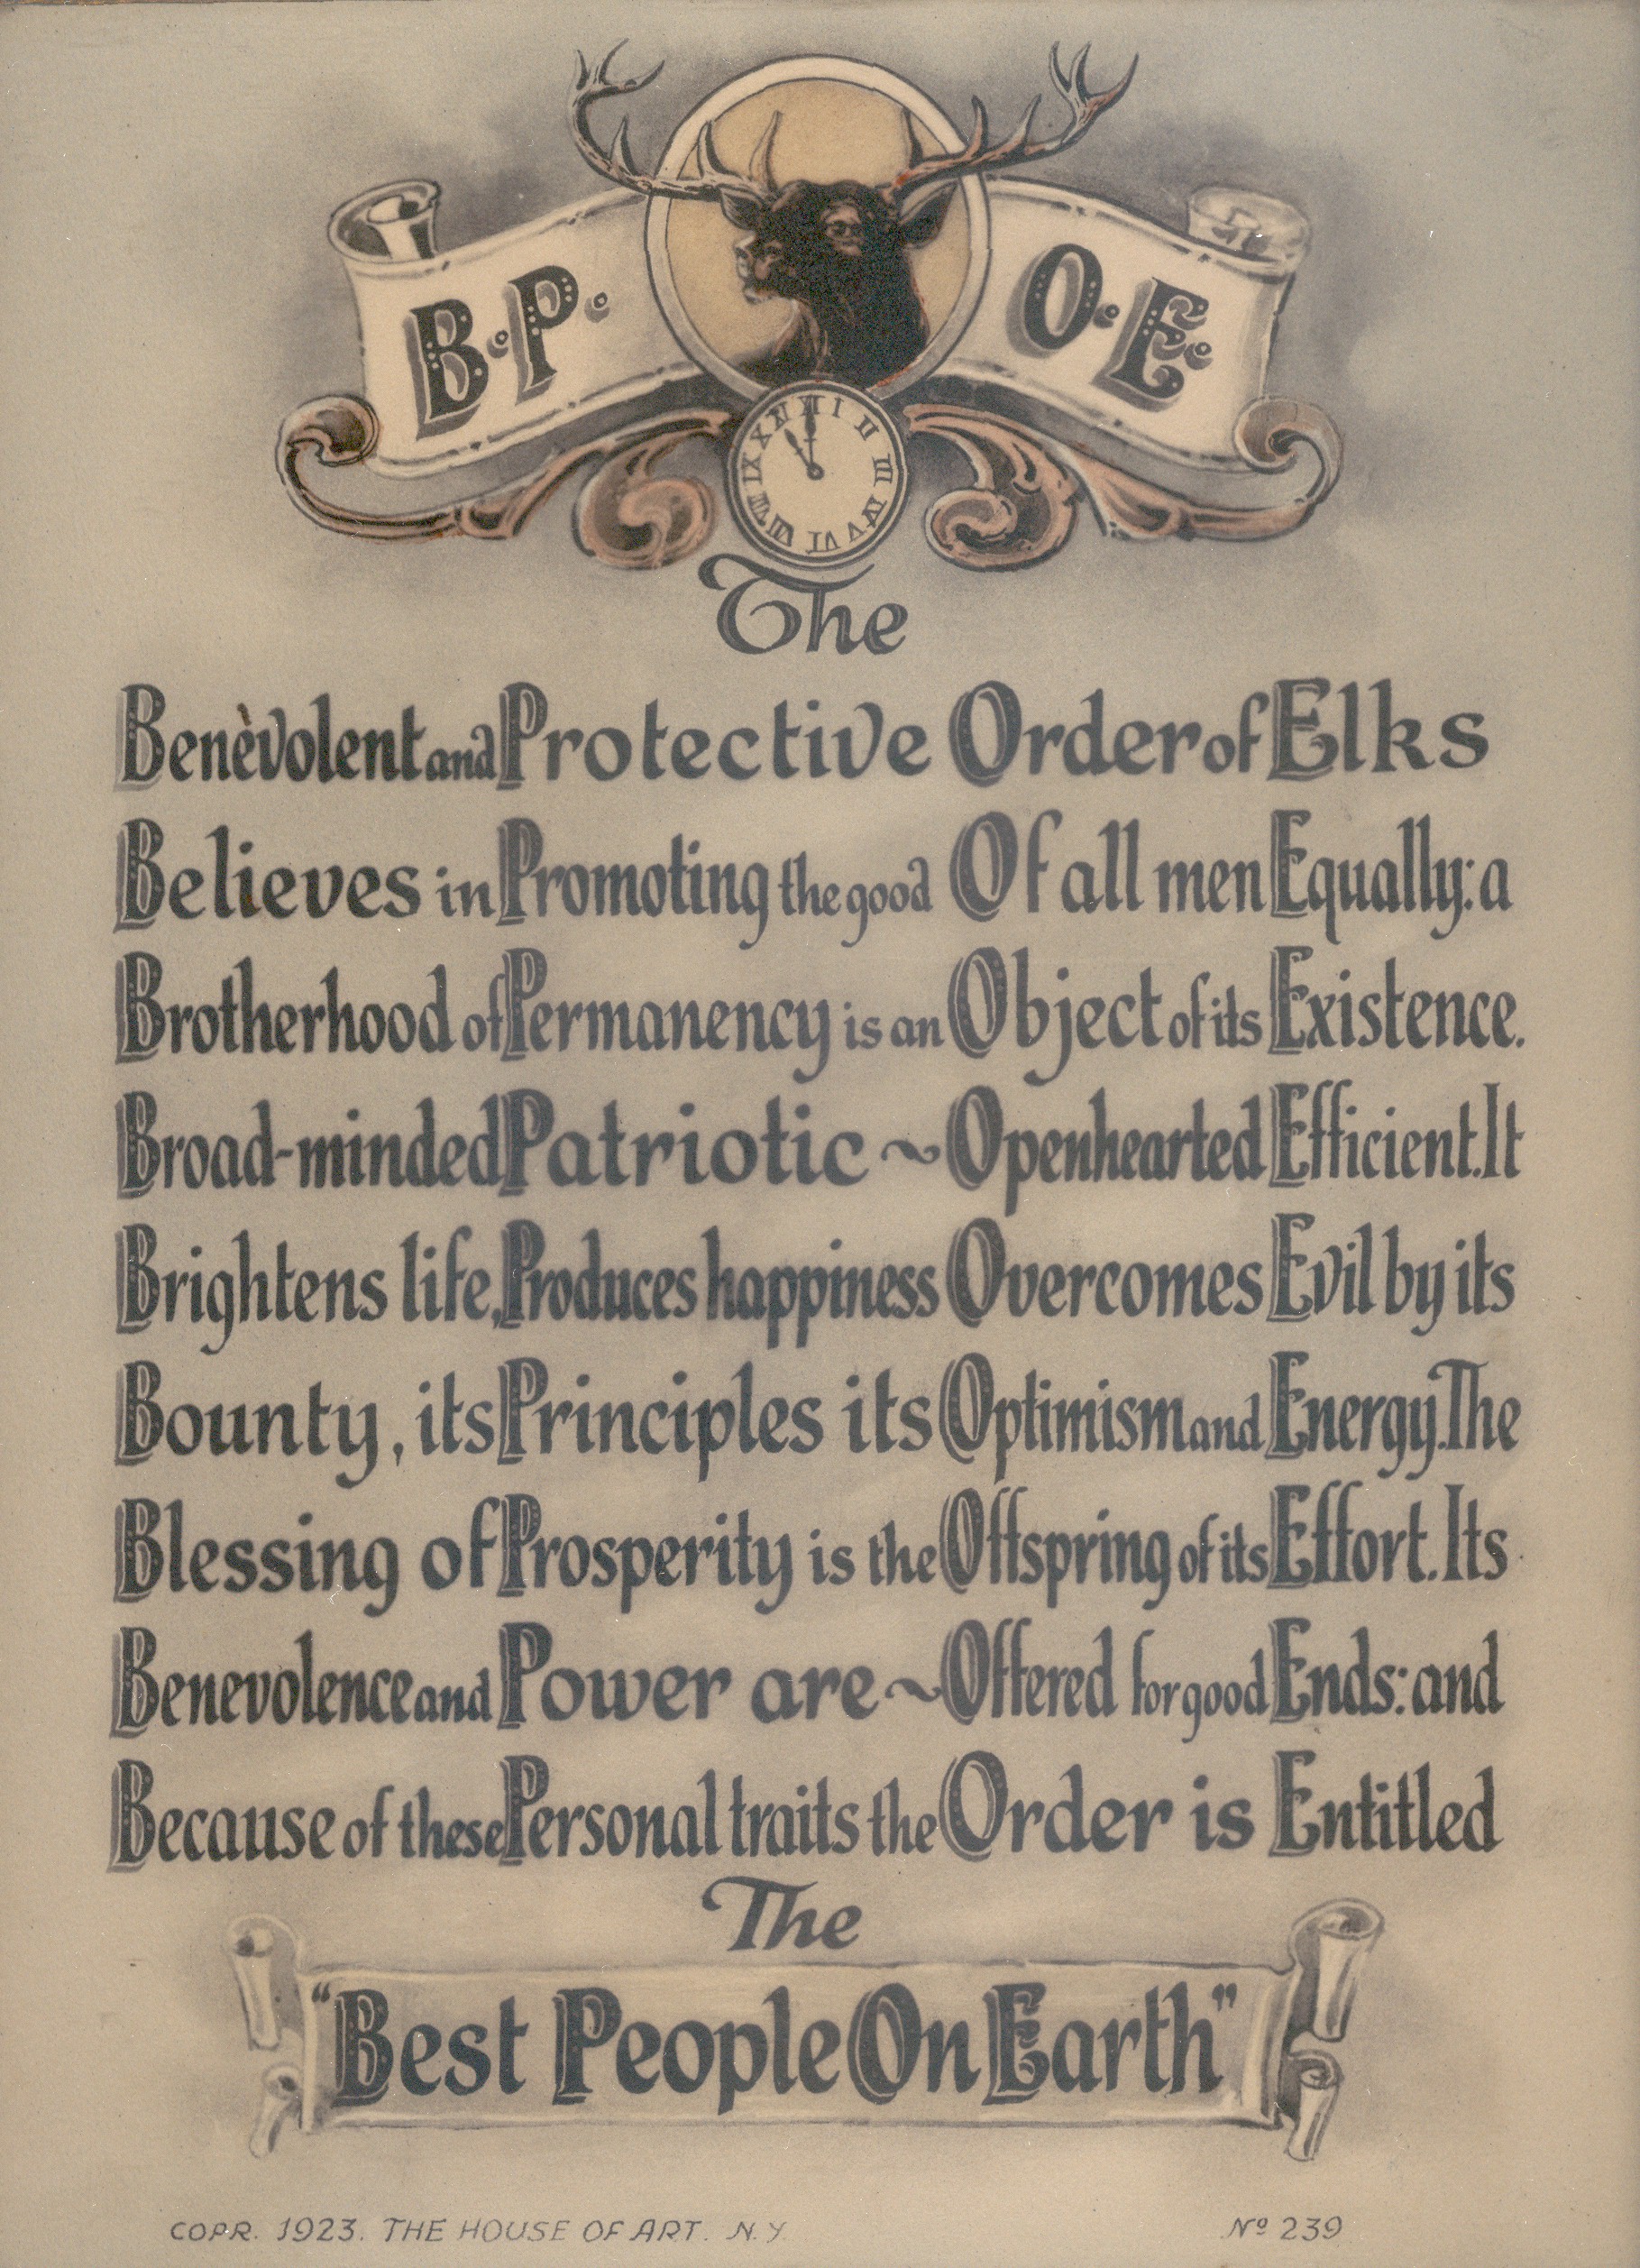 B.P.O.E.
XII I II III IV V VI VII VIII IX X XI
The
Benevolent and Protective Order of Elks
Believes in Promoting the good Of all men Equally: a
Brotherhood of Permanency is an Object of its Existence.
Broad-minded Patriotic ~ Openhearted Efficient. It
Brightens life, Produces happiness Overcomes Evil by its
Bounty, its Principles its Optimism and Energy. The
Blessing of Prosperity is the Offspring of its Effort. Its
Benevolence and Power are ~ Offered for good Ends: and
Because of these Personal traits the Order is Entitled
The
"Best People On Earth"
COPR. 1923. THE HOUSE OF ART. N.Y. Nº 239